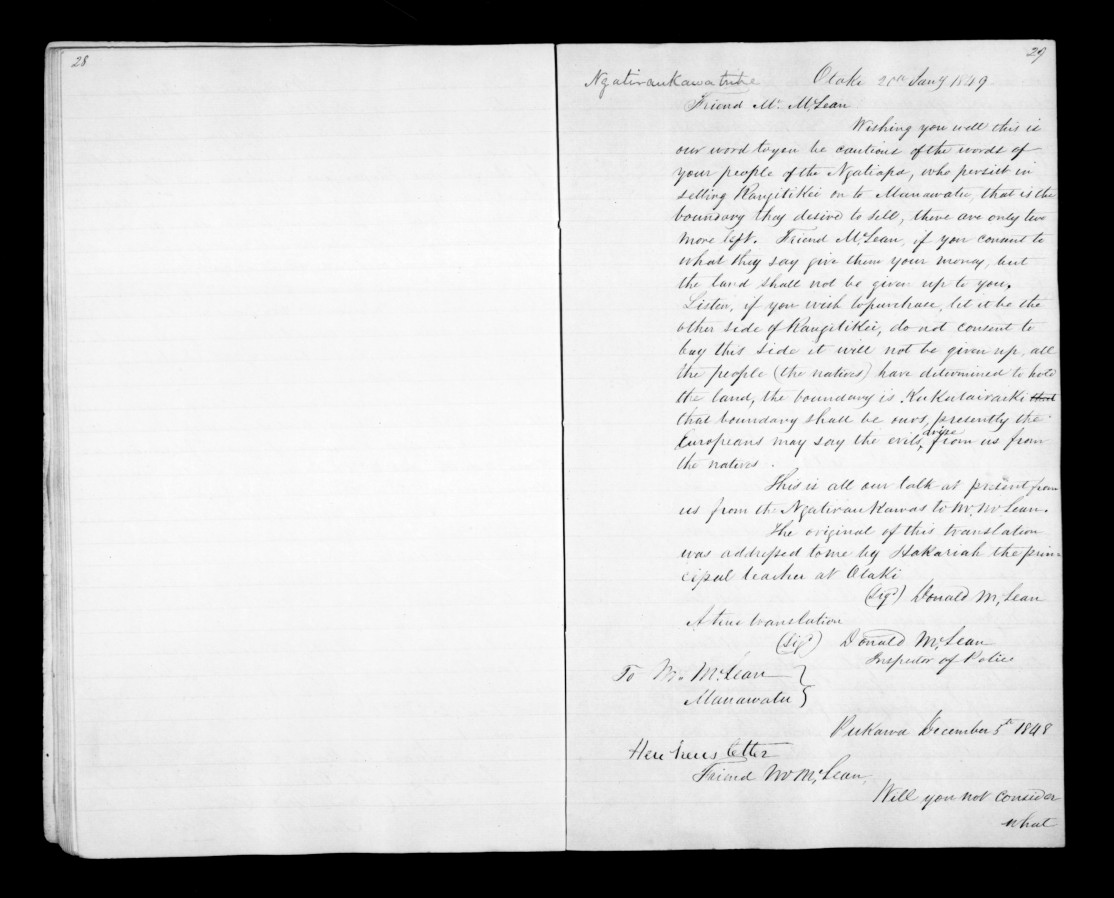 28
29
Ngatiraukawa tribe Otaki 20th Jany 1849.
Friend Mr. McLean
Wishing you well this is
our word to you be cautious of the words of
your people of the Ngatiapa, who persist in
selling Rangitikei on to Manawatu, that is the
boundary they desire to sell, there are only two
more left. Friend McLean, if you consent to
what they say give them your money, but
the land shall not be given up to you.
Listen, if you wish to purchase, let it be the
other side of Rangitikei, do not consent to
buy this side it will not be given up, all
the people (the natives) have determined to hold
the land, the boundary is
that boundary shall be ours, presently the
Europeans may say the evils arise from us from
the natives.
This is all our talk at present from
us from the Ngatiraukawas to Mr. McLean.
The original of this translation
was addressed to me by Hakariah the prin-
cipal teacher at Otaki
(Sigd) Donald McLean
A true translation
(Sigd) Donald McLean
Inspector of Police
To Mr. McLean
Manawatu
Pukawa December 5th 1848
Heu heus letter
Friend Mr McLean,
Will you not consider
what